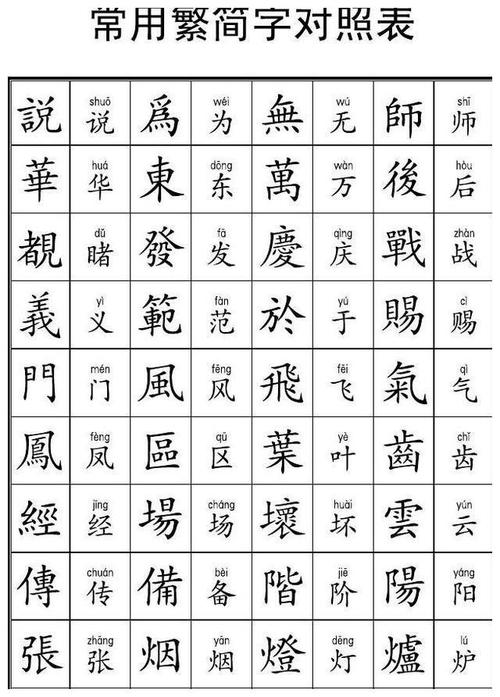 常用繁简字对照表
說 shuō 说 爲 wéi 为 無 wú 无 師 shī 师
華 huá 华 東 dōng 东 萬 wàn 万 後 hòu 后
覩 dǔ 睹 發 fā 发 慶 qìng 庆 戰 zhàn 战
義 yì 义 範 fàn 范 於 yú 于 賜 cì 赐
門 mén 门 風 fēng 风 飛 fēi 飞 氣 qì 气
鳳 fèng 凤 區 qū 区 葉 yè 叶 齒 chǐ 齿
經 jīng 经 場 cháng 场 壞 huài 坏 雲 yún 云
傳 chuán 传 備 bèi 备 階 jiē 阶 陽 yáng 阳
張 zhāng 张 烟 yān 烟 燈 dēng 灯 爐 lú 炉